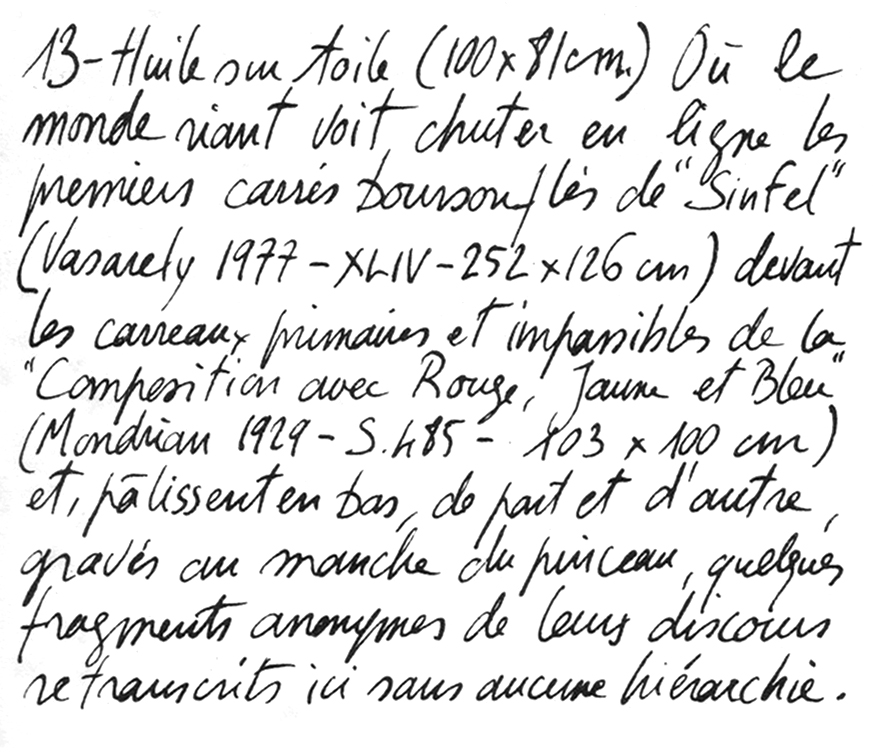 13-Huile sur toile (100x81cm.) Où le
monde riant voit chuter en ligne les
premiers carrés boursouflés de "Sinfel"
(Vasarely 1977-XLIV-252x126 cm) devant
les carreaux primaires et impassibles de la
"Composition avec Rouge, Jaune et Bleu"
(Mondrian 1929 - S.485 - 103 x 100 cm)
et, pâlissent en bas, de part et d'autre,
gravés au manche du pinceau, quelques
fragments anonymes de leurs discours
retranscrits ici sans aucune hiérarchie.